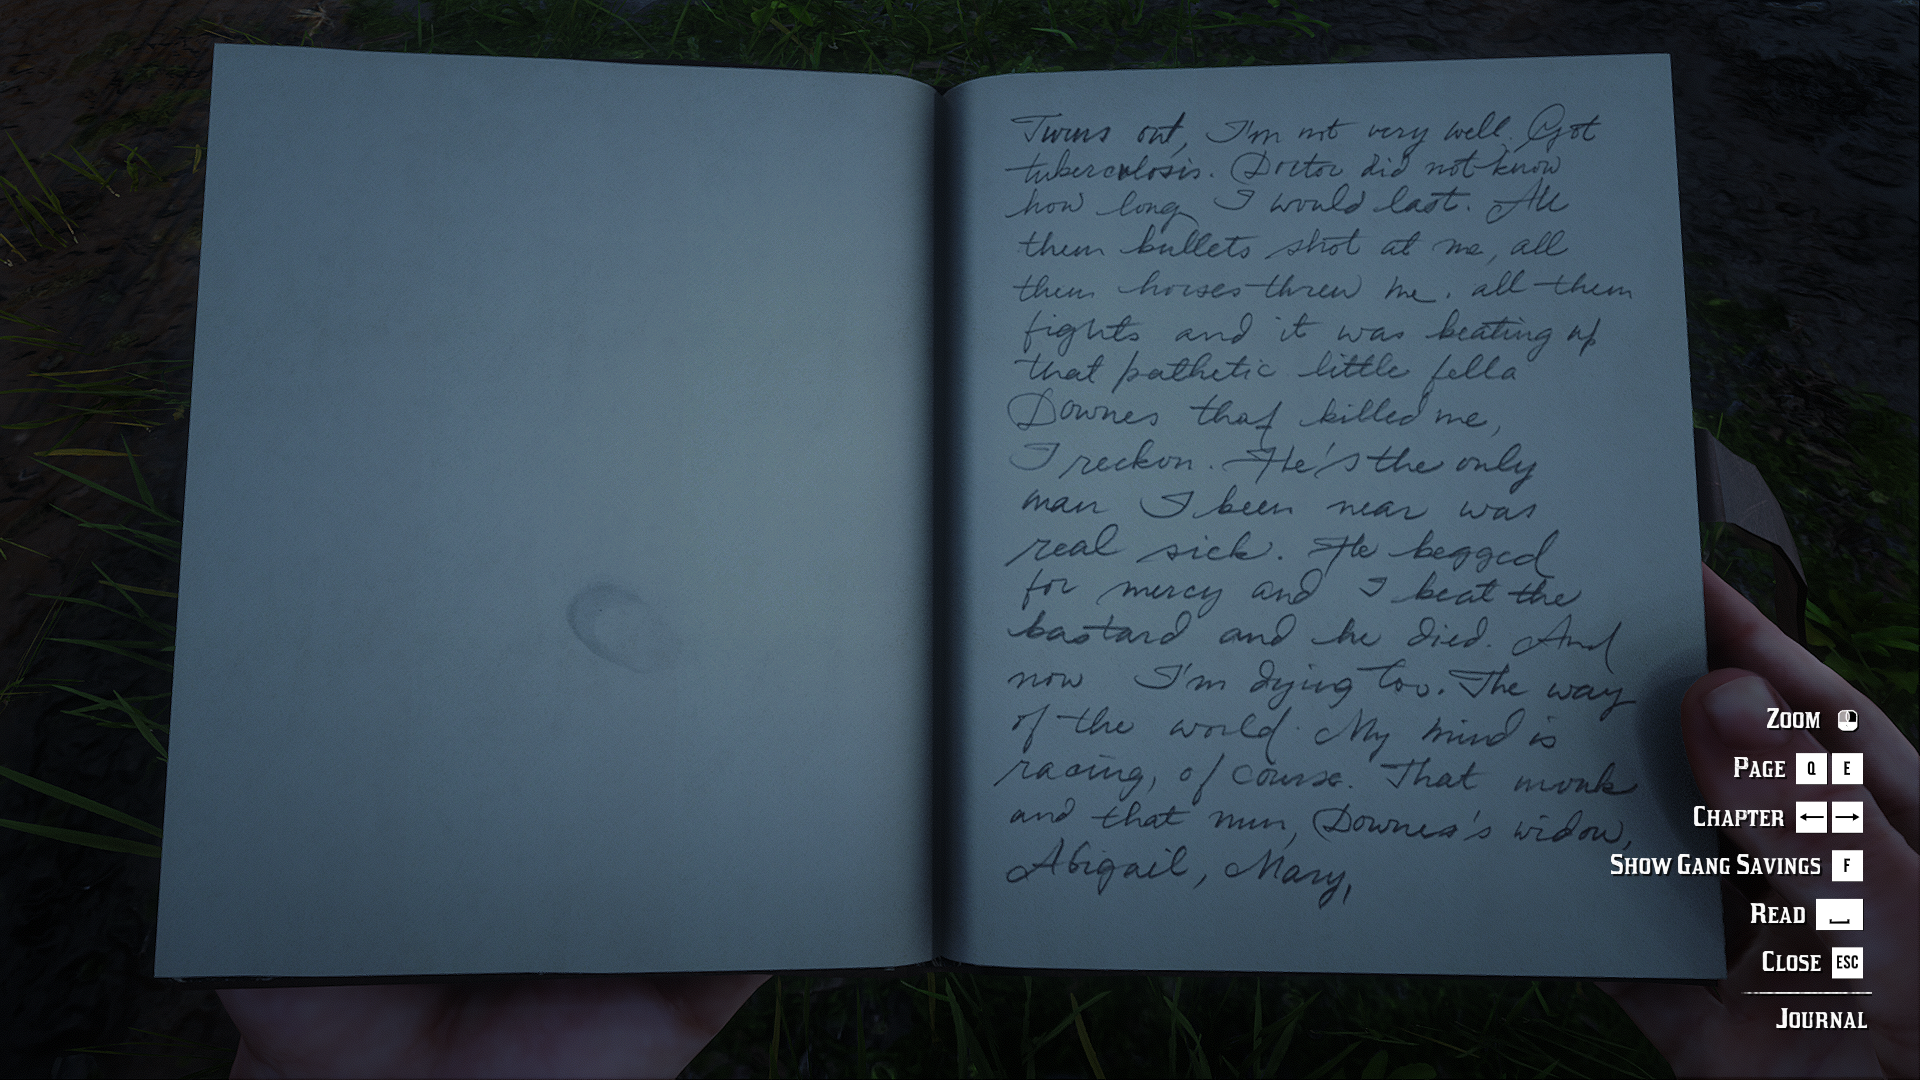 Turns out, I'm not very well. Got
tuberculosis. Doctor did not know
how long I would last. All
them bullets shot at me, all
them horses threw me. all them
fights and it was beating up
that pathetic little fella
Downes that killed me,
I reckon. He's the only
man I been near was
real sick. He begged
for mercy and I beat the
bastard and he died. And
now I'm dying too. The way
of the world. My mind is
racing, of course. That monk
and that nun, Downes's widow,
Abigail, Mary,
ZOOM
PAGE Q E
CHAPTER ← →
SHOW GANG SAVINGS F
READ
CLOSE ESC
JOURNAL